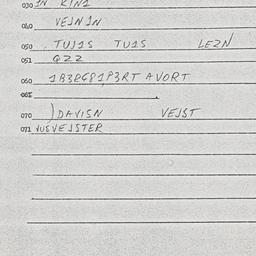 030 IN KIN1
040 VEJNIN
050 TUJ1S TUJ1S LEZN
051 QZZ
060 1B3R6P1P3RT AVORT
061
070 )DAVISN VEJST
071 VUSVEJSTER